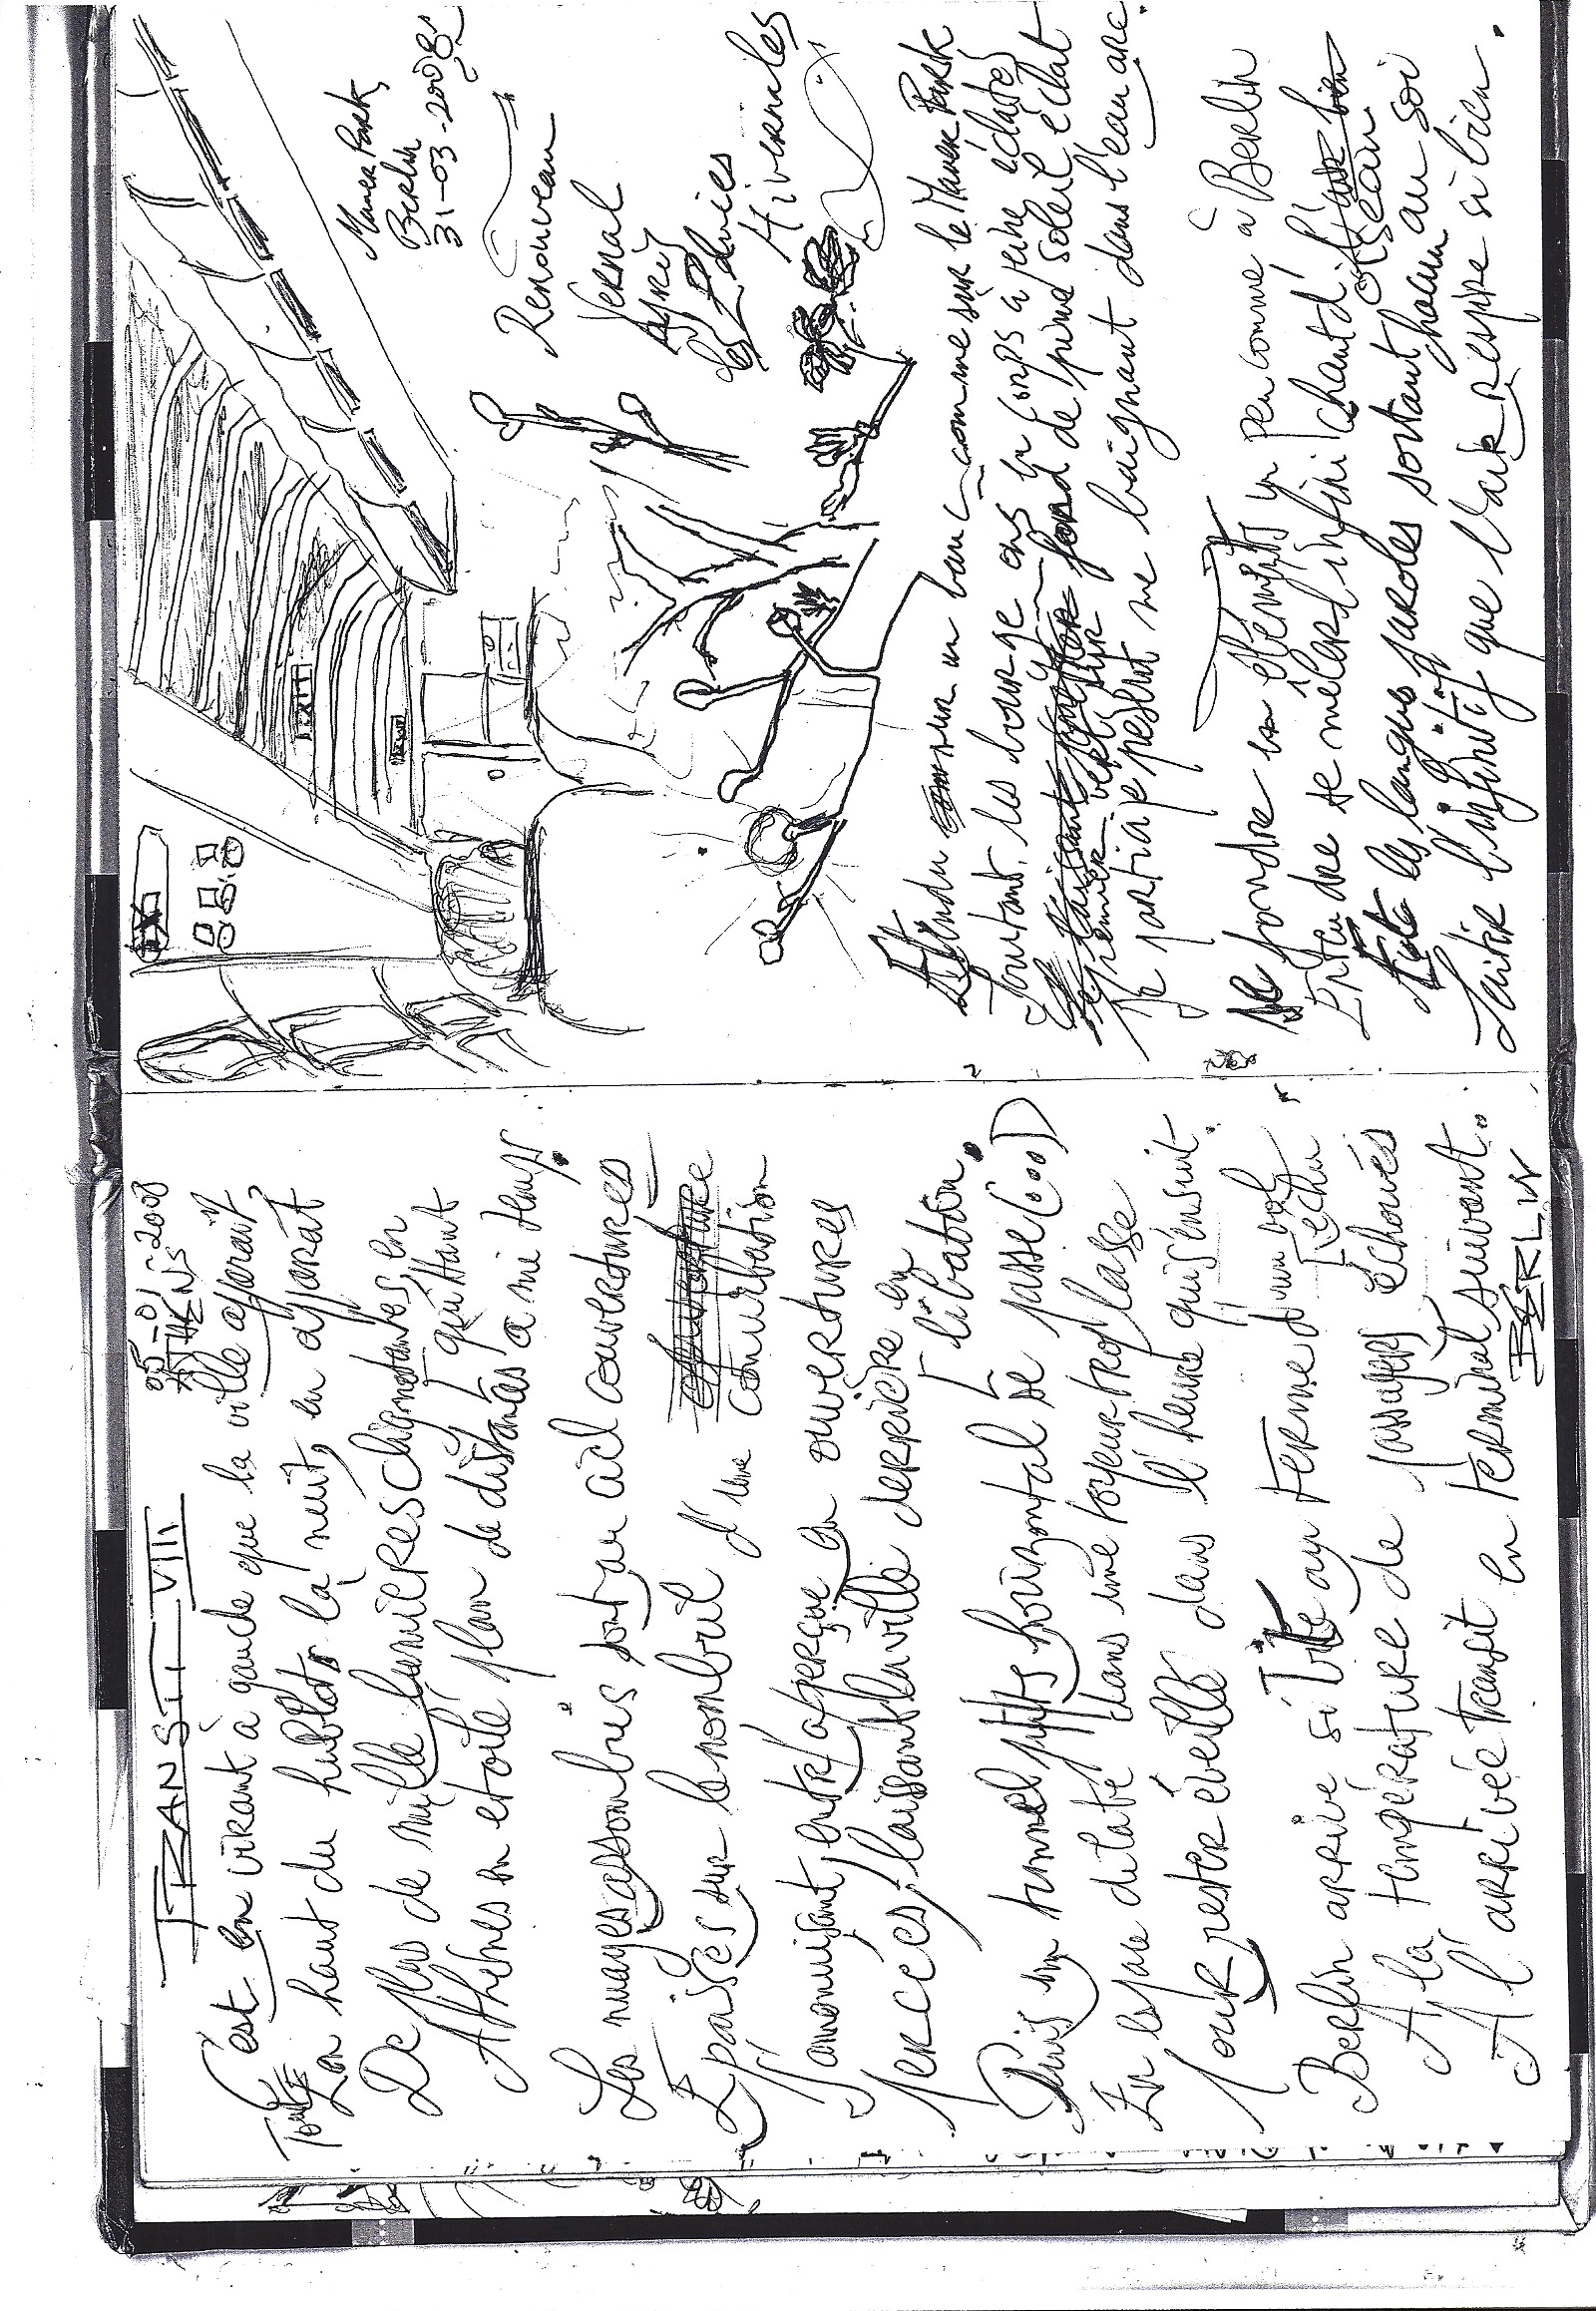 TRANSIT VIII
05-01-2008
ATHENS
C'est en virant à gauche que la ville apparaît
Tout
En haut du hublot, la nuit, en apparat
De plus de mille lumières clignotantes, en
Athènes en étoile plan de distances qu'étant à mi temps.
Les nuages assombris sont au ciel couvertures
Epaisses sur le nombril d'une
conurbation
S'amenuisant, entr'aperçue en ouvertures
Percées, laissant la ville derrière en libation.
Puis un tunnel, jutts, horizontal se passe (...)
En espace dilaté dans une torpeur trop lasse
Pour rester éveillé dans l'heure qui s'ensuit.
Berlin arrive si tôt au terme d'un vol
A la température de passagers échoués
A l'arrivée transit en terminal suivant..
BERLIN
Mauer Park
Berlin
31-03-2008
EXIT
Renouveau
Vernal
Après
les Pluies
Hivernales
Etendu sur un banc comme sur le Mauer Park
Pourtant, les bourgeons en corps à peine éclatés
premier vert sur fond de plein soleil éclat
Je partirai pestant me baignant dans l'eau arc.
Se fondre en éléments un peu comme à Berlin
Entendre se mêler l'infini chant d'oiseau
les langues paroles sortant chacun au soi
Laisser l'infinitif que l'air respire si bien.